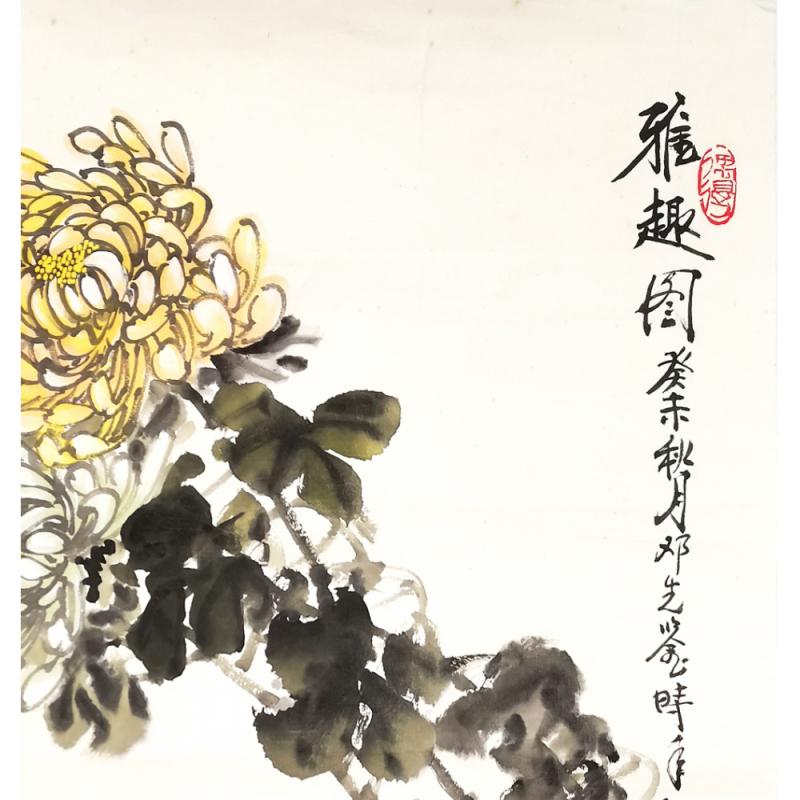 雅趣图癸未秋月邓先鉴時年